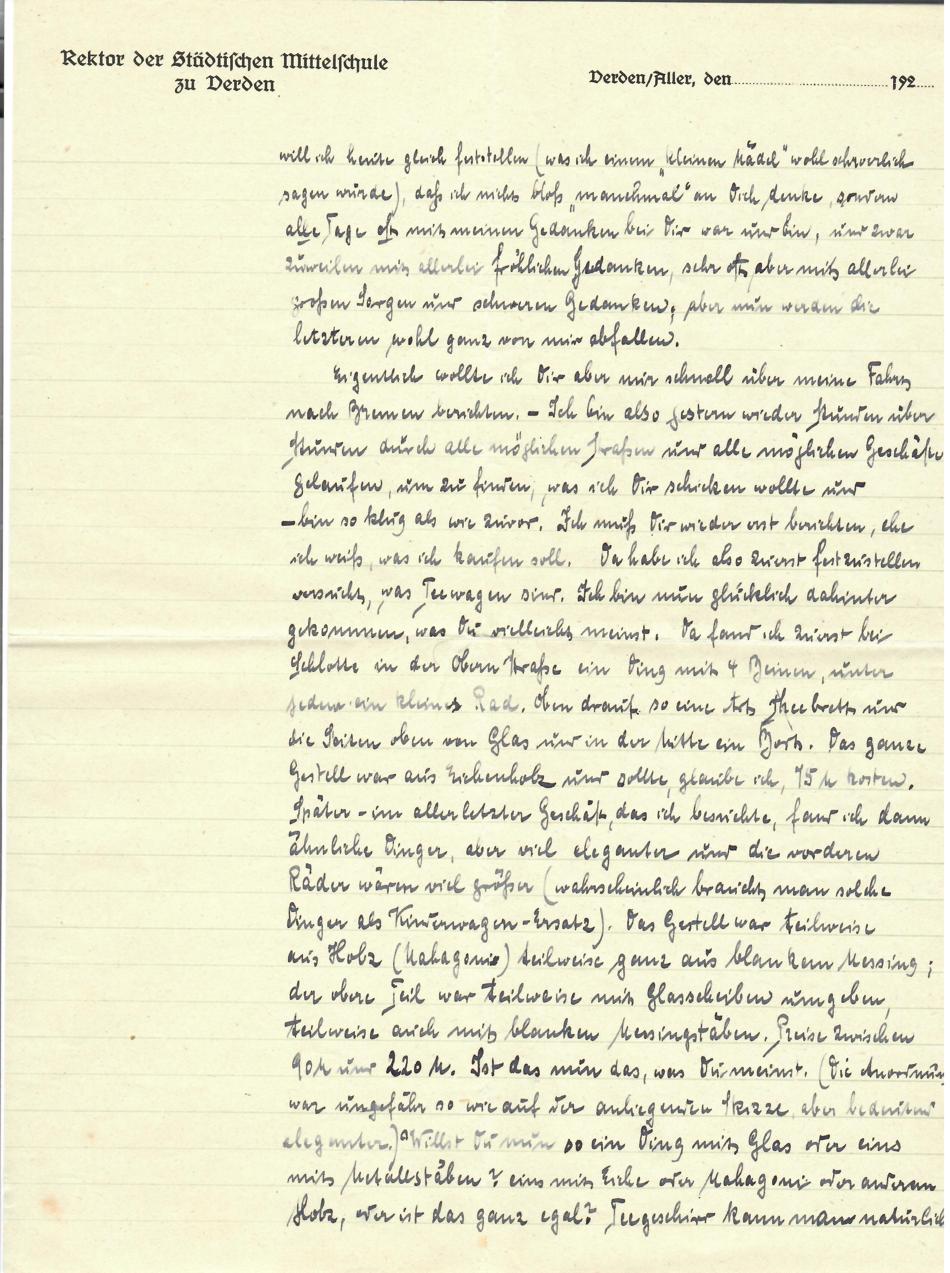 Rektor der Städtischen Mittelschule
zu Verden
Verden/Aller, den 192
will ich heute gleich feststellen (was ich einem "kleinen Mädel" wohl schwerlich
sagen würde), daß ich nicht bloß "manchmal" an Dich denke, sondern
alle Tage oft mit meinen Gedanken bei Dir war und bin, und zwar
zuweilen mit allerlei fröhlichen Gedanken, sehr oft aber mit allerlei
großen Sorgen und schweren Gedanken; aber nun werden die
letzteren wohl ganz von mir abfallen.
Eigentlich wollte ich Dir aber nur schnell über meine Fahrt
nach Bremen berichten. – Ich bin also gestern wieder Stunden über
Stunden durch alle möglichen Straßen und alle möglichen Geschäfte
gelaufen, um zu finden, was ich Dir schicken wollte und
– bin so klug als wie zuvor. Ich muß Dir wieder erst berichten, ehe
ich weiß, was ich kaufen soll. Da habe ich also zuerst festzustellen
versucht, was Teewagen sind. Ich bin nun glücklich dahinter
gekommen, was Du vielleicht meinst. Da fand ich zuerst bei
Schlotte in der Obernstraße ein Ding mit 4 Beinen, unter
jedem ein kleines Rad. Oben drauf so eine Art Theebrett und
die Seiten oben von Glas und in der Mitte ein Bort. Das ganze
Gestell war aus Eichenholz und sollte, glaube ich, 75 M kosten.
Später – im allerletzter Geschäft, das ich besuchte, fand ich dann
ähnliche Dinger, aber viel eleganter und die vorderen
Räder wären viel größer (wahrscheinlich braucht man solche
Dinger als Kinderwagen-Ersatz). Das Gestell war teilweise
aus Holz (Mahagonie) teilweise ganz aus blankem Messing;
der obere Teil war teilweise mit Glasscheiben umgeben,
teilweise auch mit blanken Messingstäben. Preise zwischen
90 M und 220 M. Ist das nun das, was Du meinst. (Die Anordnung
war ungefähr so wie auf der anliegenden Skizze, aber bedeutend
eleganter.) Willst Du nun so ein Ding mit Glas oder eins
mit Metallstäben? eins mit Eiche oder Mahagoni oder anderem
Holz, oder ist das ganz egal? Teegeschirr kann man natürlich